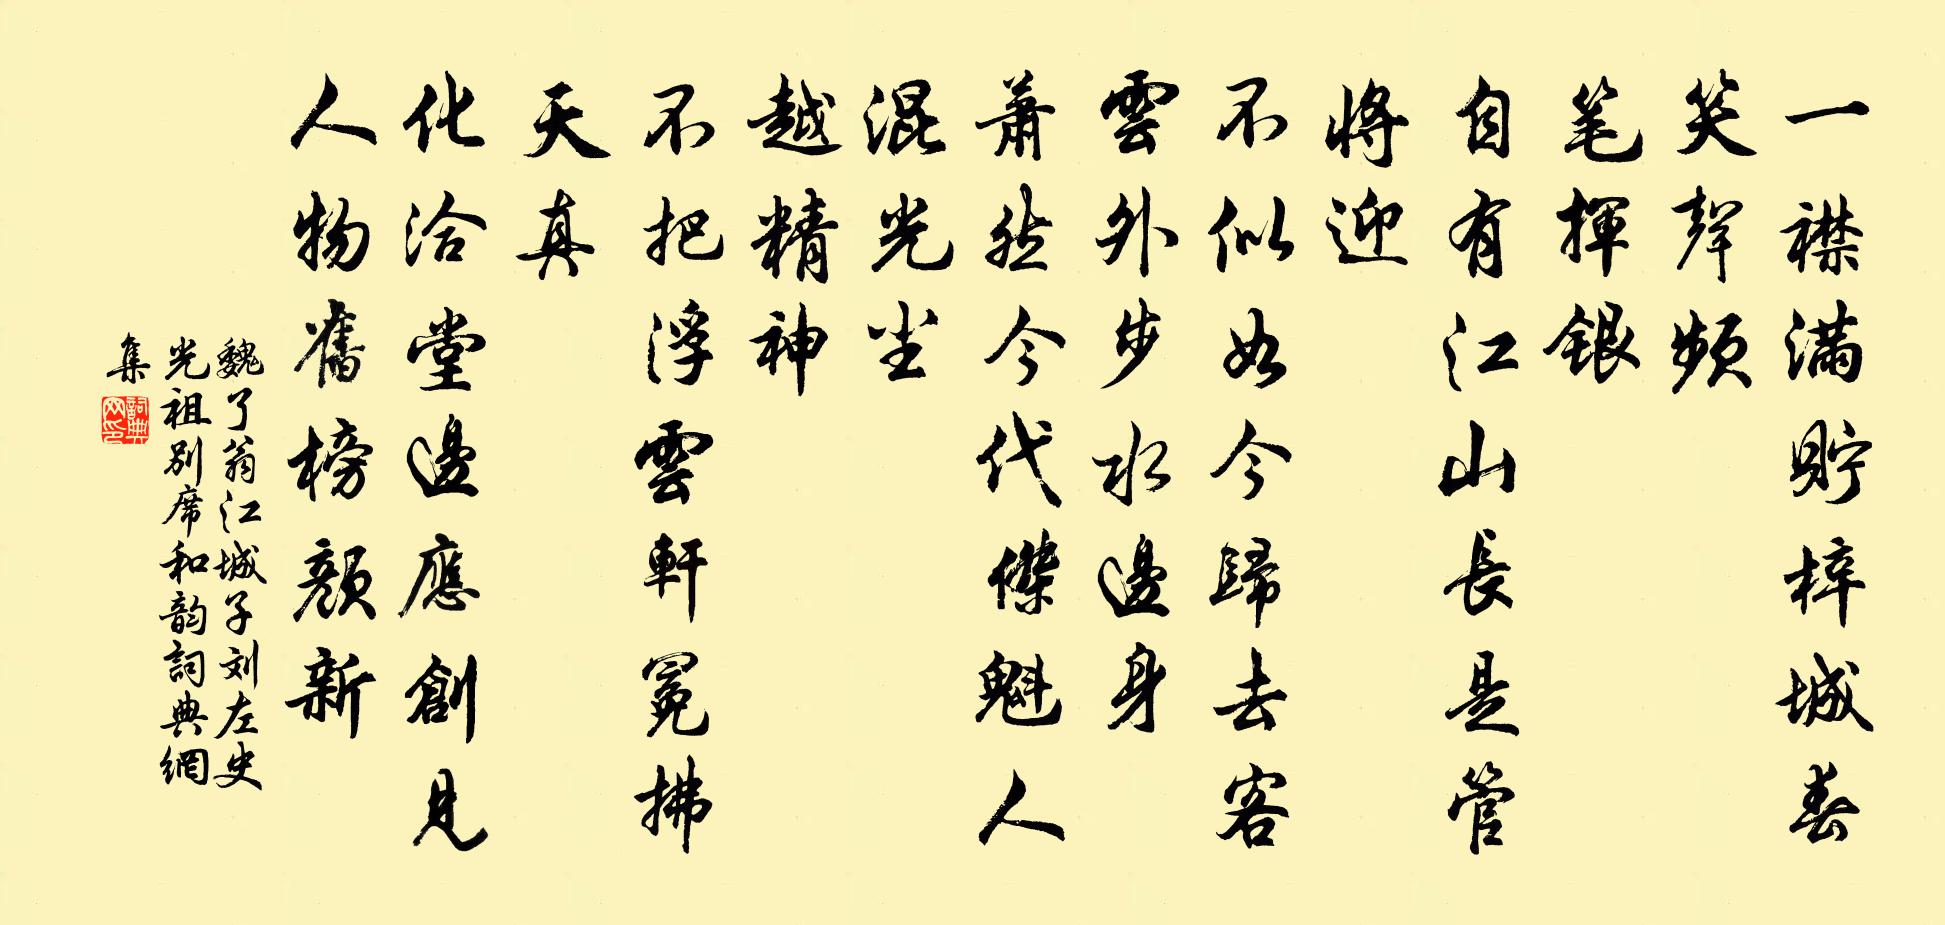 一襟滿貯梓城春
笑聲頻
笔揮銀
自有江山長是管
將迎
不似如今歸去客
雲外步水邊身
蕭然今代傑魁人
混光尘
越精神
不把浮雲軒冕拂
天真
化洽堂邊應創見
人物舊榜顏新
魏了翁江城子刘左史
光祖別席和韵詞典網
集
詞典
网印